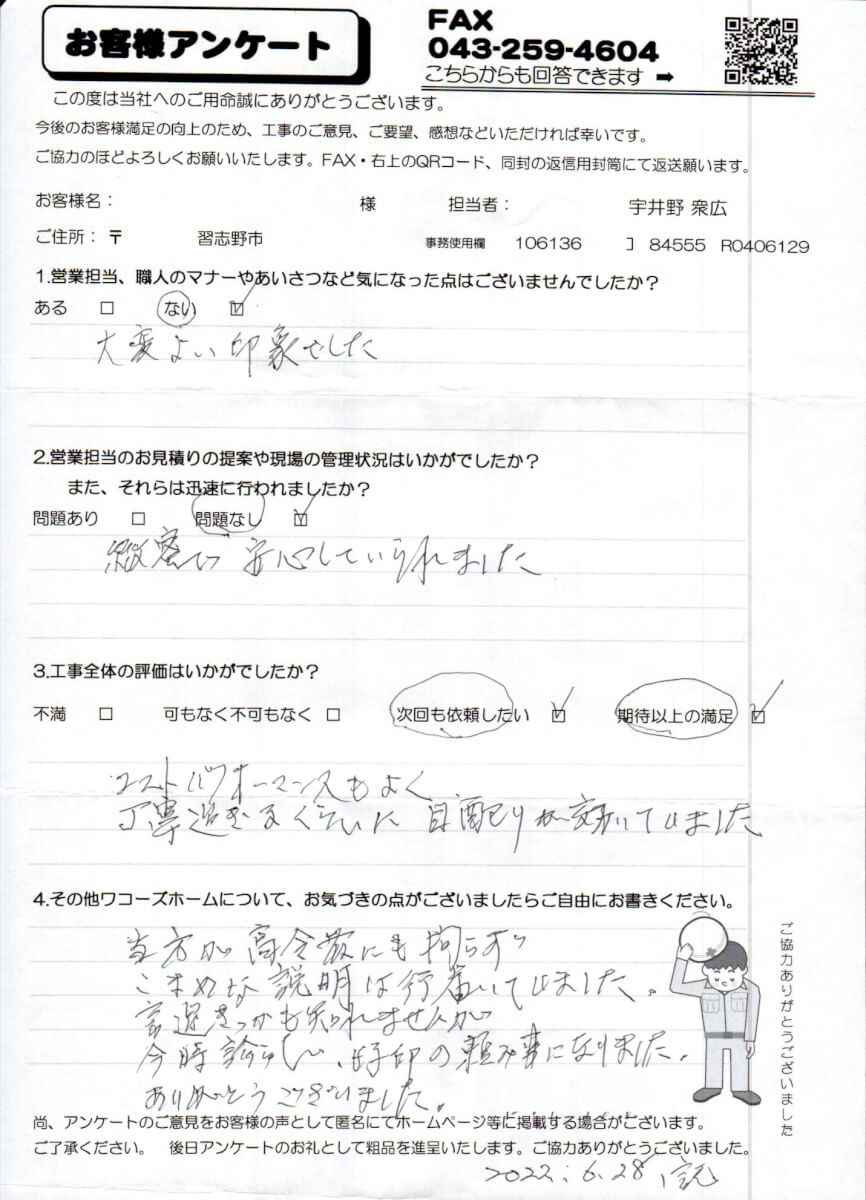 お客様アンケート
FAX
043-259-4604
こちらからも回答できます ➡
この度は当社へのご用命誠にありがとうございます。
今後のお客様満足の向上のため、工事のご意見、ご要望、感想などいただければ幸いです。
ご協力のほどよろしくお願いいたします。FAX・右上のQRコード、同封の返信用封筒にて返送願います。
お客様名： 様 担当者： 宇井野 衆広
ご住所：〒 習志野市 事務使用欄 106136 コ 84555 R0406129
1.営業担当、職人のマナーやあいさつなど気になった点はございませんでしたか？
ある □ ない ☑
大変よい印象でした
2.営業担当のお見積りの提案や現場の管理状況はいかがでしたか？
また、それらは迅速に行われましたか？
問題あり □ 問題なし ☑
緻密で安心していられました
3.工事全体の評価はいかがでしたか？
不満 □ 可もなく不可もなく □ 次回も依頼したい ☑ 期待以上の満足 ☑
コストパフォーマンスもよく
丁寧過ぎるくらいに目配りが効いていました
4.その他ワコーズホームについて、お気づきの点がございましたらご自由にお書きください。
当方が高令故にも拘らず
こまめな説明は行届いていました。
言過ぎかも知れませんが
今時珍らしい、好印の頼み事になりました。
ありがとうございました。
ご協力ありがとうございました
尚、アンケートのご意見をお客様の声として匿名にてホームページ等に掲載する場合がございます。
ご了承ください。 後日アンケートのお礼として粗品を進呈いたします。ご協力ありがとうございました。
2022.6.28 記